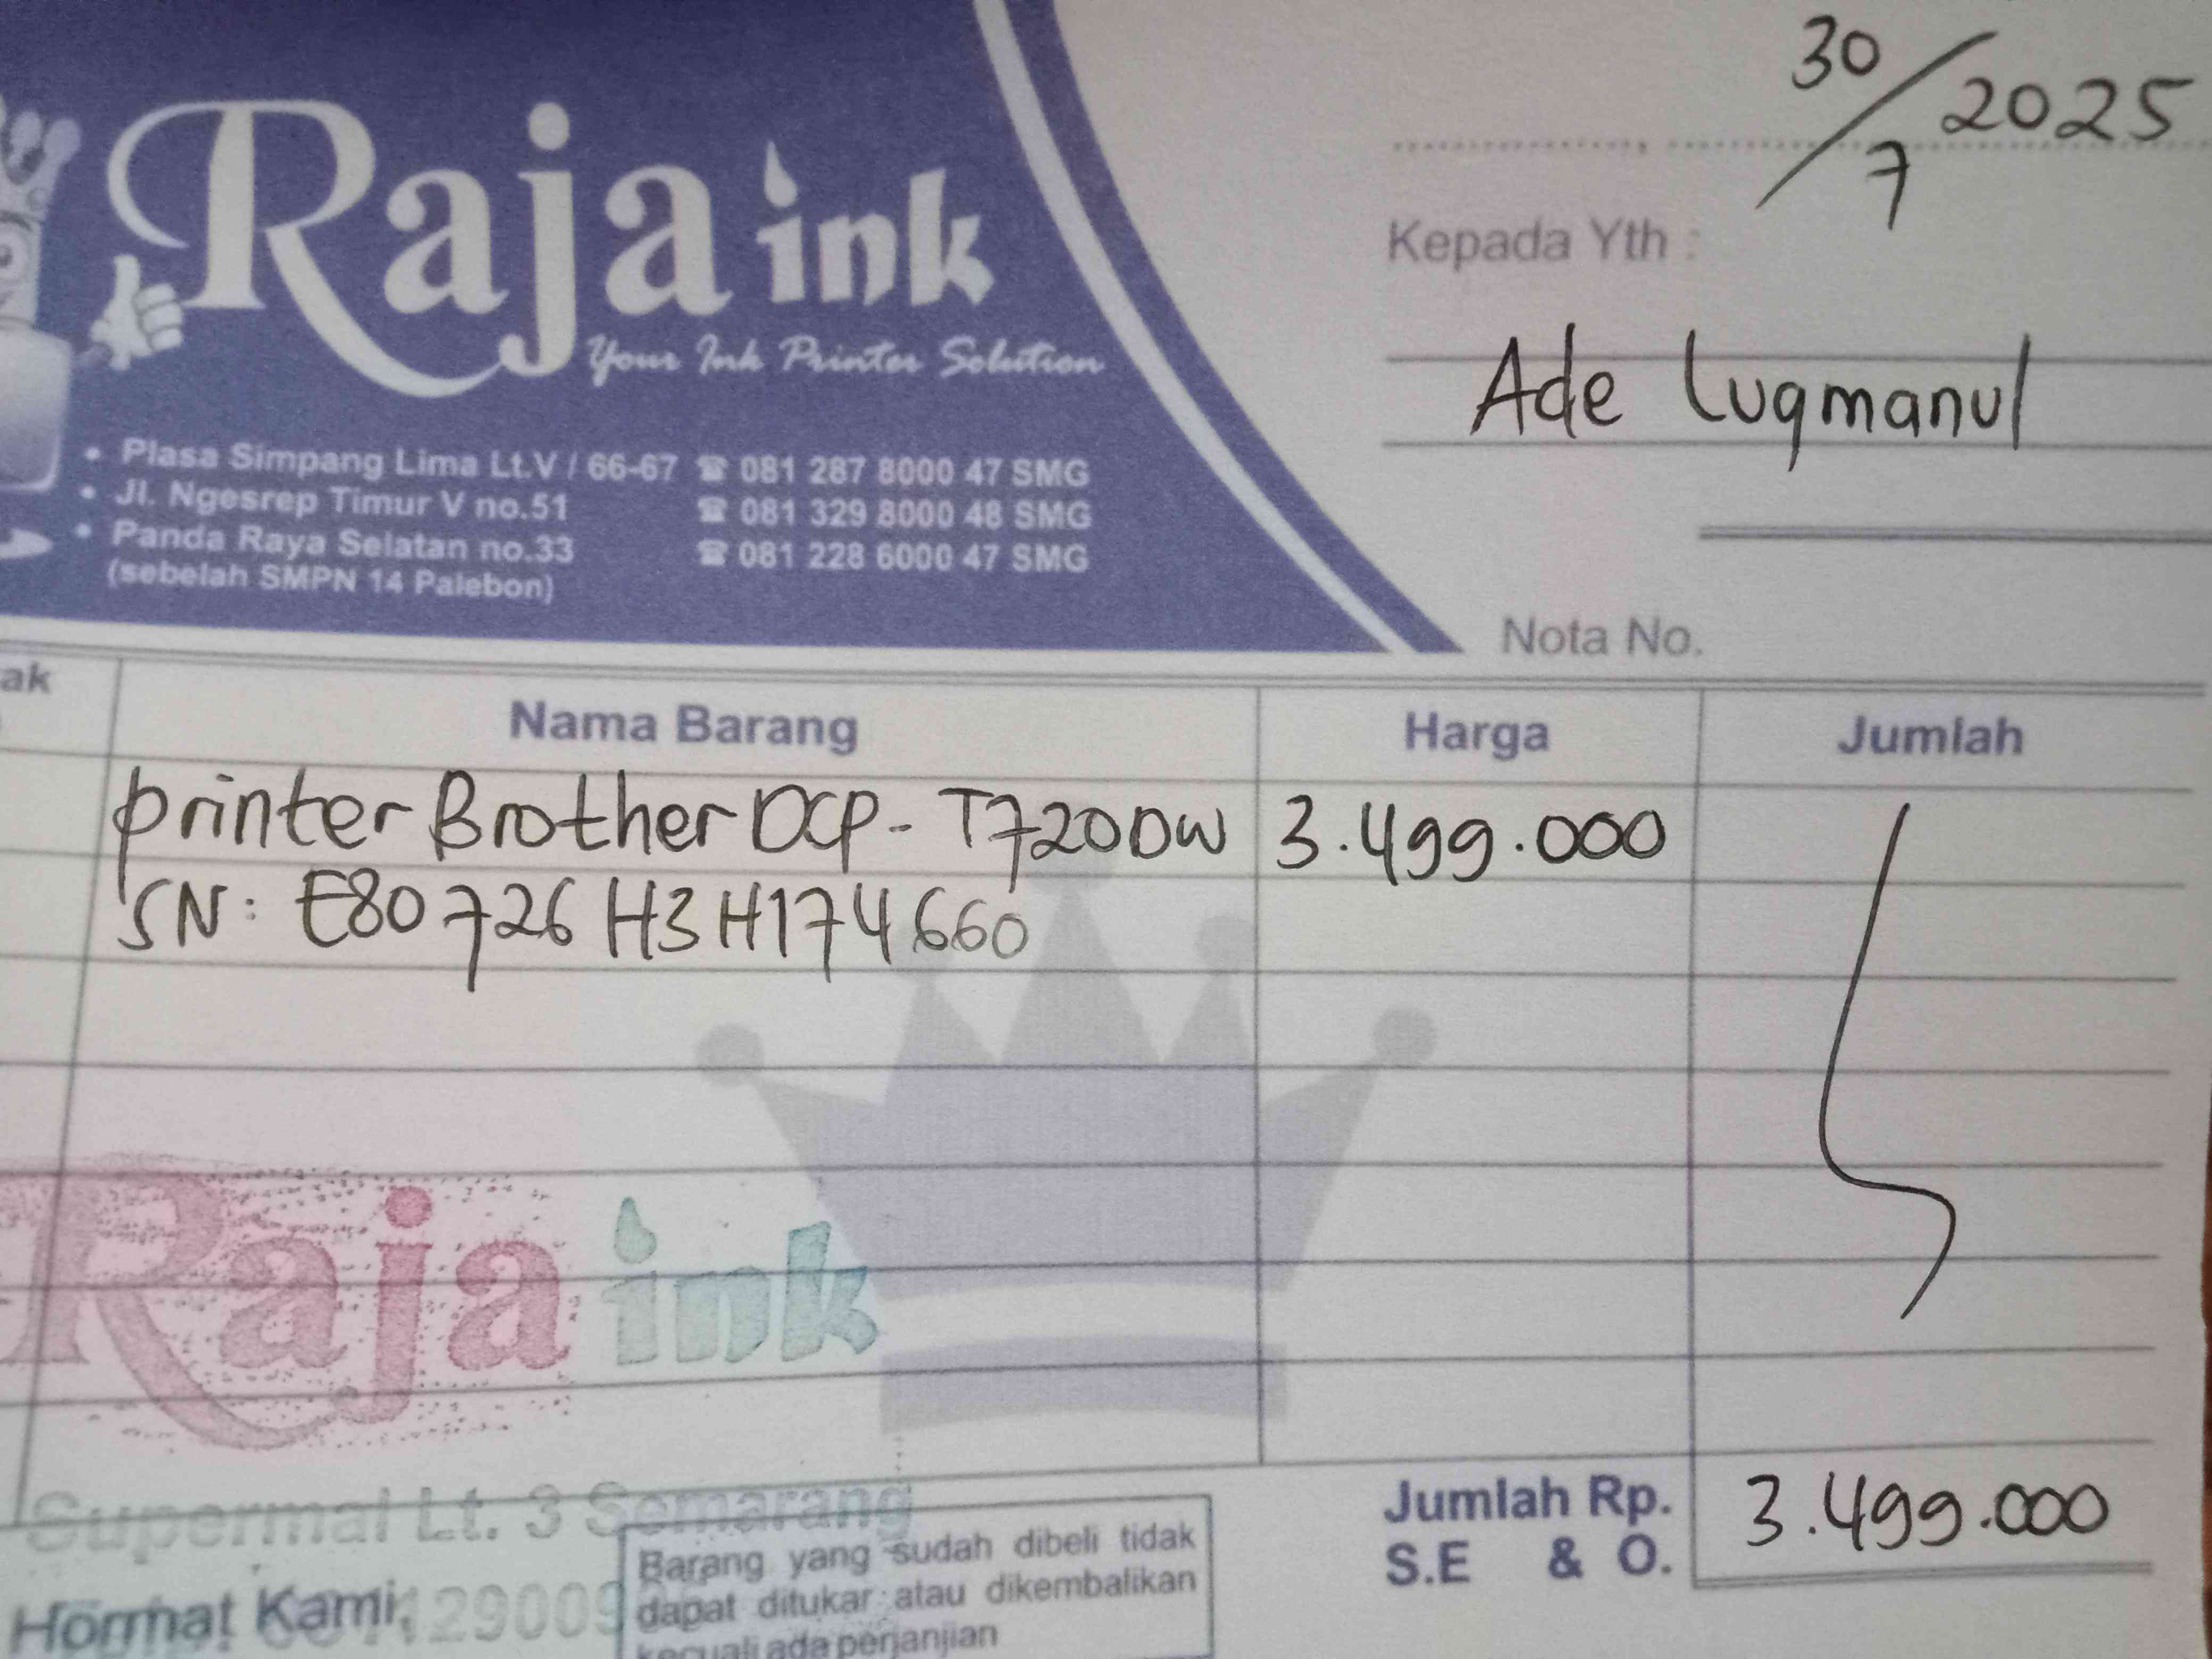 30/7 2025
Raja ink
Your Ink Printer Solution
Kepada Yth :
Ade Luqmanul
• Plasa Simpang Lima Lt.V / 66-67 ☎ 081 287 8000 47 SMG
• Jl. Ngesrep Timur V no.51 ☎ 081 329 8000 48 SMG
• Panda Raya Selatan no.33 ☎ 081 228 6000 47 SMG
(sebelah SMPN 14 Palebon)
Nota No.
ak Nama Barang Harga Jumlah
printer Brother DCP-T720DW 3.499.000
SN: E80726H3H174660
Raja ink
Supermal Lt. 3 Semarang
Jumlah Rp. 3.499.000
S.E & O.
Hormat Kami,
Barang yang sudah dibeli tidak
dapat ditukar atau dikembalikan
kecuali ada perjanjian